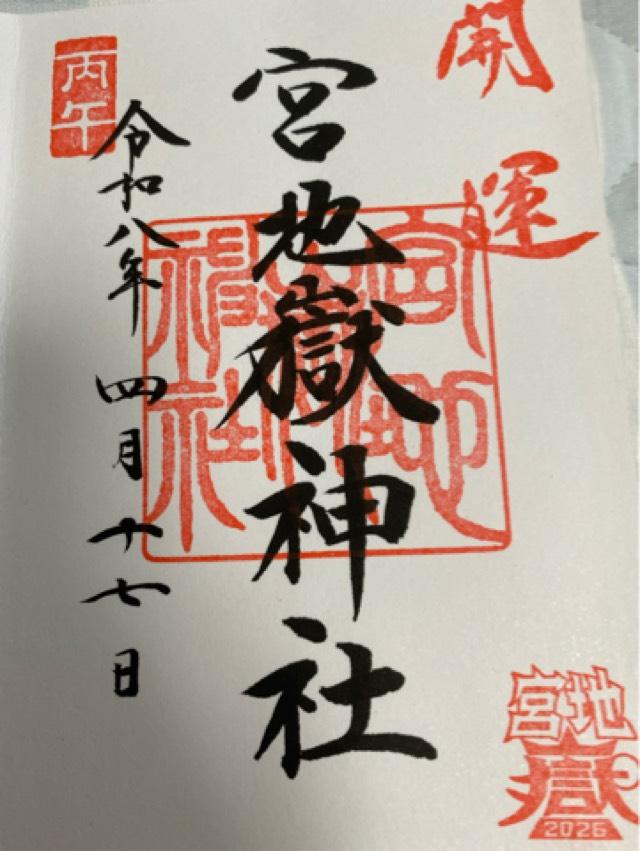 開運
宮地嶽神社
宮地嶽神社
令和八年四月十七日
丙午
宮地
嶽
2026